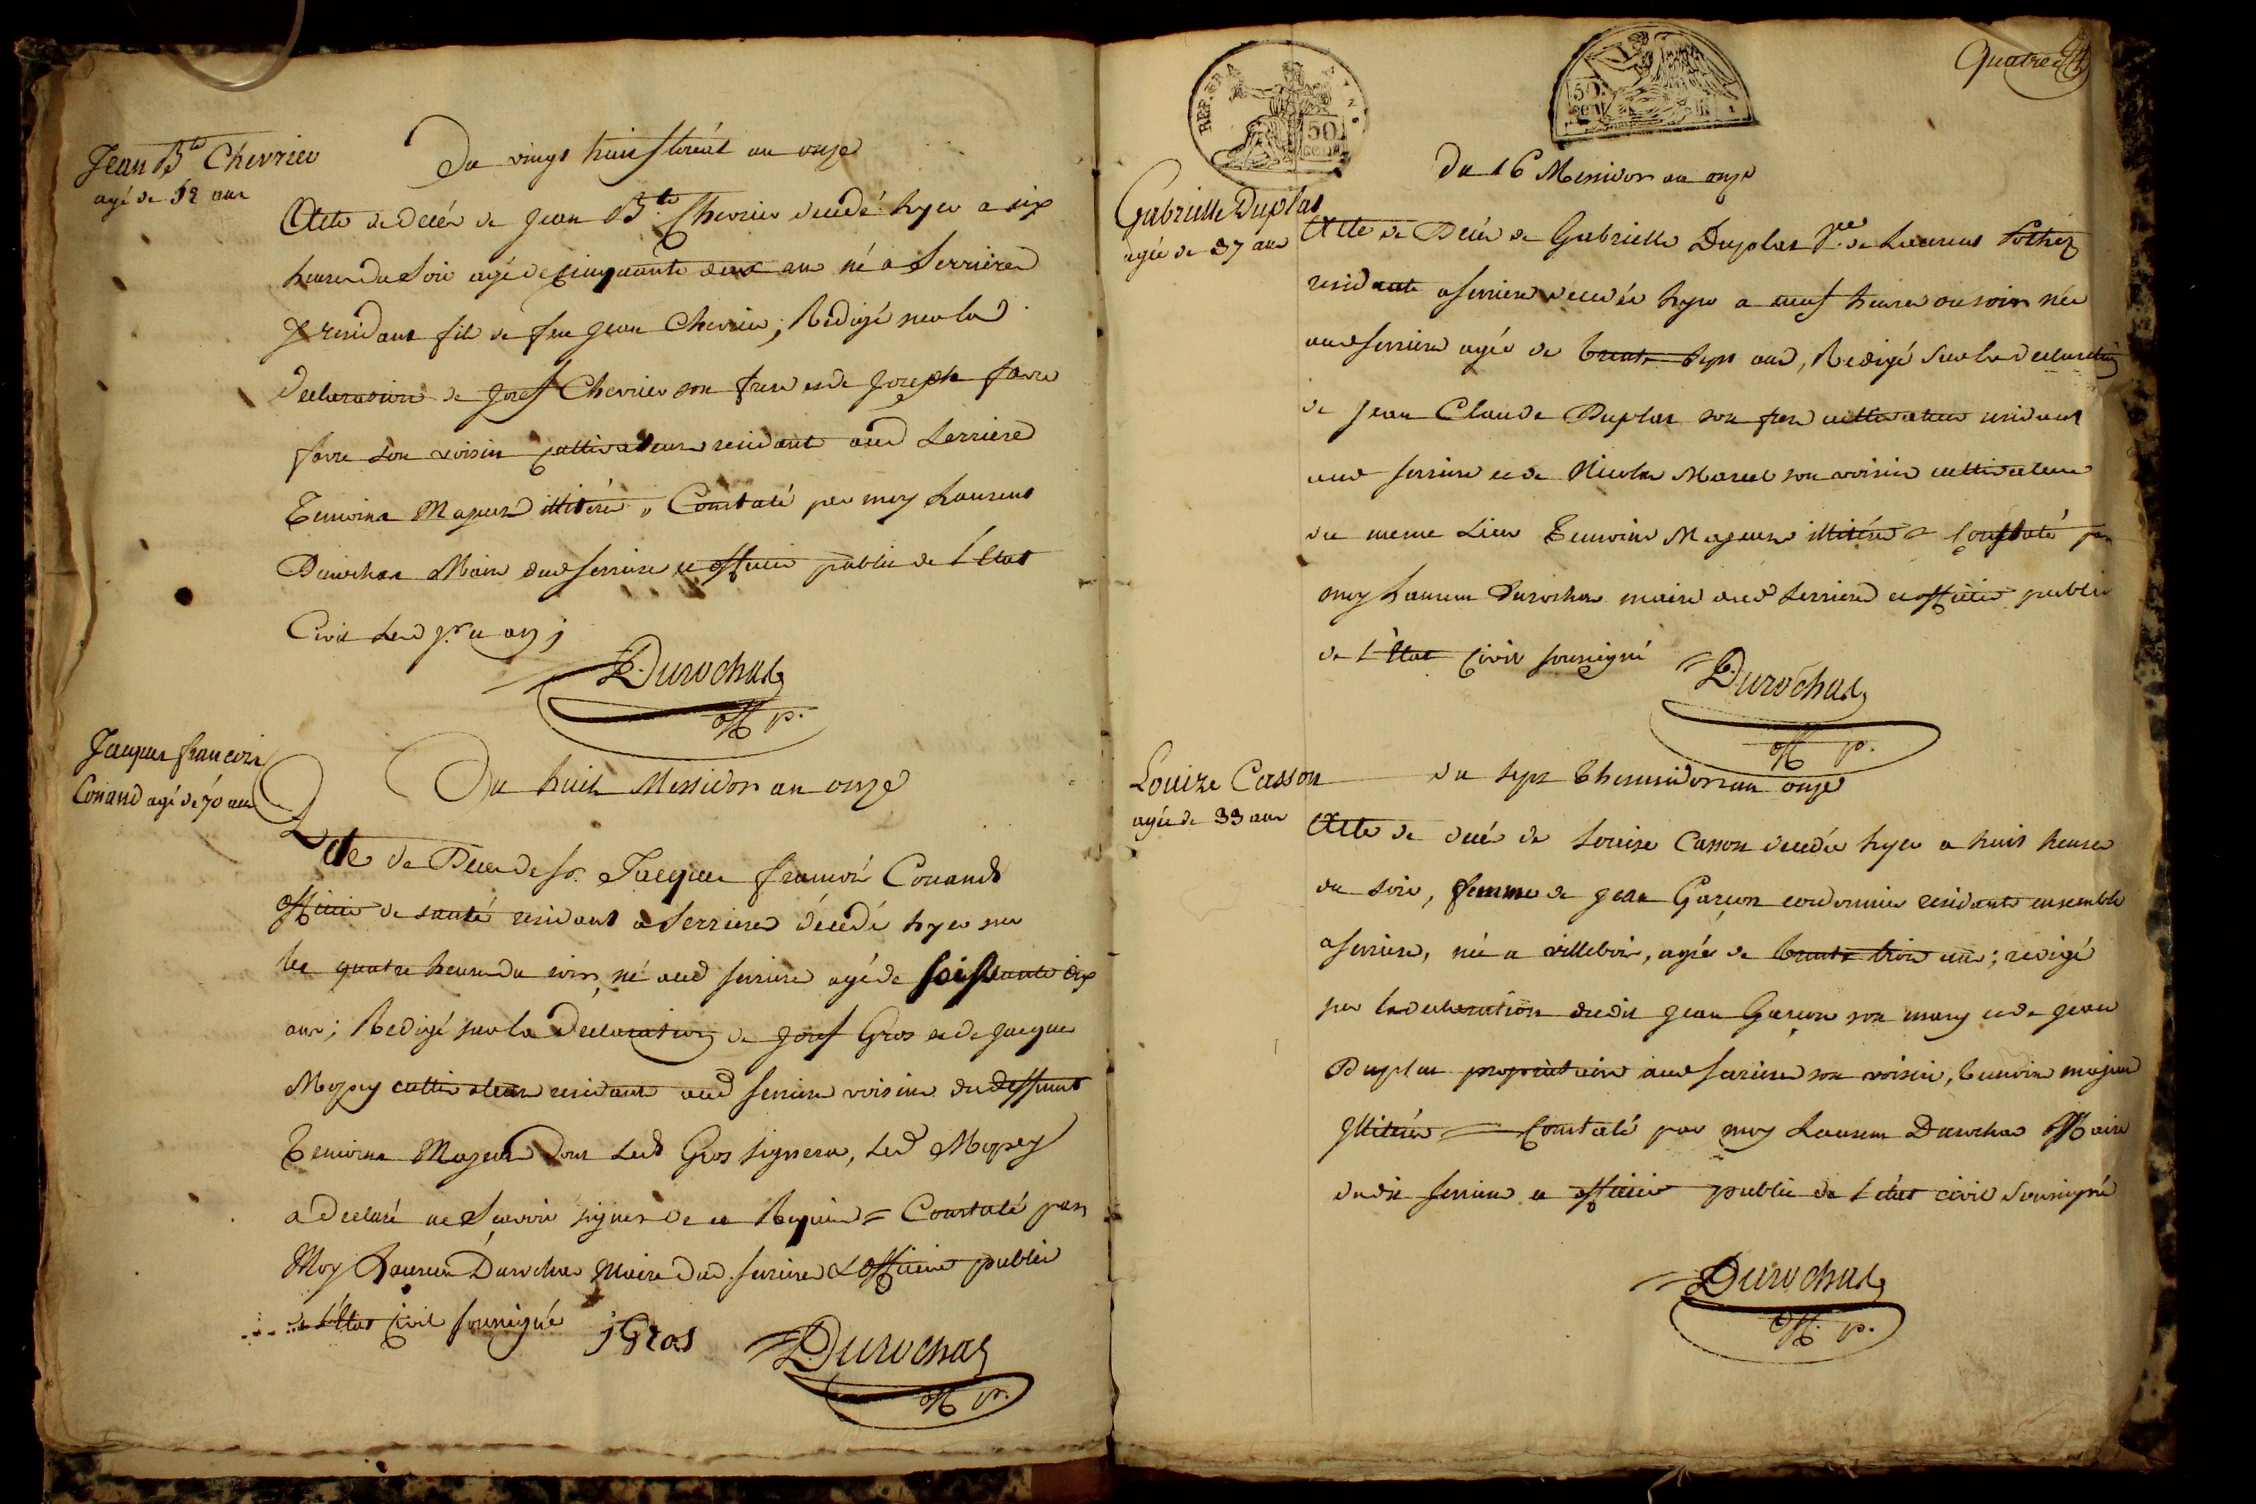 Jean B.te Chevrier
agé de 52 ans
Du vingt huit floréal an onze
Acte de Décés de Jean B.te Chevrier decedé hyer a six
heures du Soir agé de cinquante deux ans né a Serrieres
y residant fils de feu Jean Chevrier ; Redigé sur la
declaration de Josef Chevrier son frere et de Joseph favre
favre son voisin cultivateurs residants aud Serrieres
Temoins Majeurs illitérés, Constaté par moy Laurent
Durochat Maire dud Serrieres et officier public de L'Etat
Civil
Durochat
off p.
Jacques francois
Conand agé de 70 ans
Du huit Messidor an onze
Acte de Deces de Sr. Jacques francois Conand
officier de santé residant a Serrieres décedé hyer sur
les quatre heures du soir, né aud Serrieres agé de soissante dix
ans ; Redigé sur la Declaration de Josef Gros et de Jacques
cultivateurs residants aud Serrieres voisins du deffunt
Temoins Majeurs dont Led Gros signera, Led
a declaré ne Scavoir signer de ce Requis = Constaté par
Moy Laurent Durochat Maire dud. Serrieres & officier public
de L'Etat Civil soussigné
j Gros
Durochat
off p.
Quatre 4
REP. FRA
50
cent
50
cen
Gabrielle Duplat
agée de 37 ans
du 16 Messidor an onze
Acte de Décés de Gabrielle Duplat f.e de Laurent Pothez
residante a Serrieres decedée hyer a neuf heures du soir née
aud Serrieres agée de trente sept ans, Redigé Sur la declaration
de Jean Claude Duplat son frere cultivateur residant
aud Serrieres et de Nicolas Marcel son voisin cultivateur
du meme Lieu Temoins Majeurs illitérés = Constaté par
moy Laurent Durochat maire dud Serrieres et officier public
de L'Etat Civil soussigné
Durochat
off p.
Louize Casson
agée de 33 ans
du sept Thermidor an onze
Acte de decés de Louise Casson decedée hyer a huit heures
du soir, femme de Jean Garçon cordonnier residants ensemble
a Serrieres, née a villebois, agée de trente trois ans ; redigé
sur la declaration dudit Jean Garçon son mary et de Jean
Duplat propriétaire aud Serrieres son voisin, temoins majeurs
Illitérés = Constaté par moy Laurent Durochat Maire
dudit Serrieres et officier public de L'état civil Soussigné
Durochat
off. p.